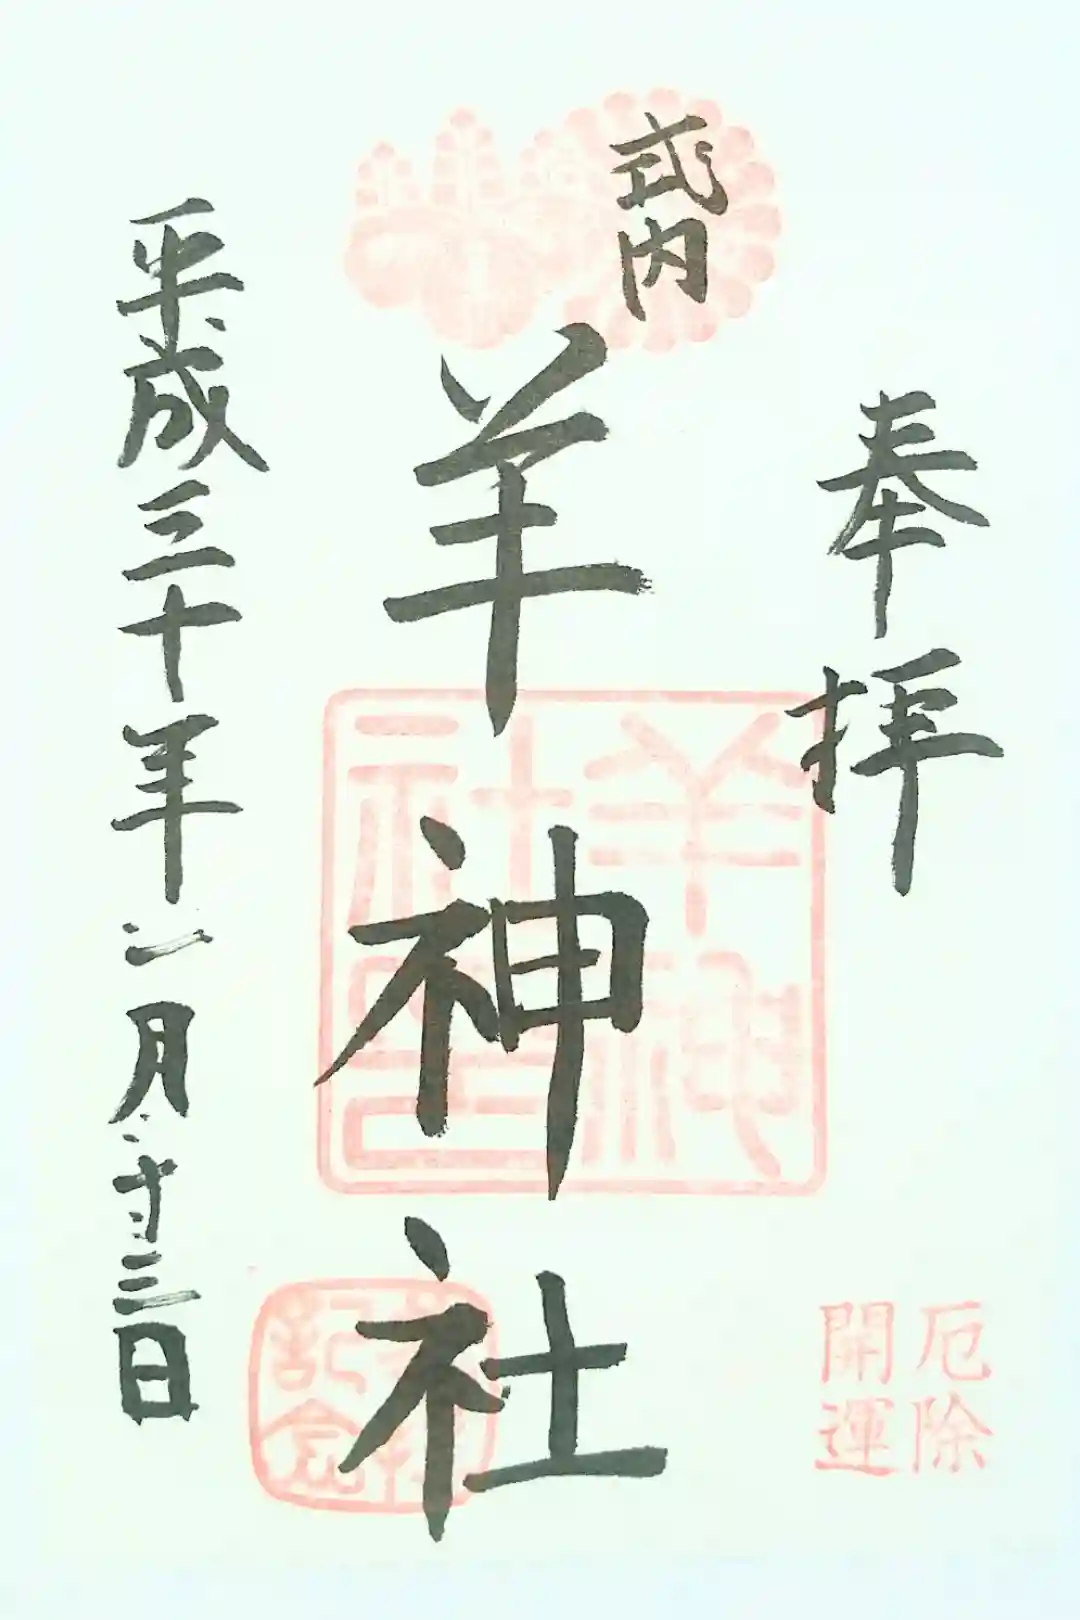 奉拝
厄除
開運
式内
羊神社
羊神
社印
参拝
記念
平成三十年二月廿三日